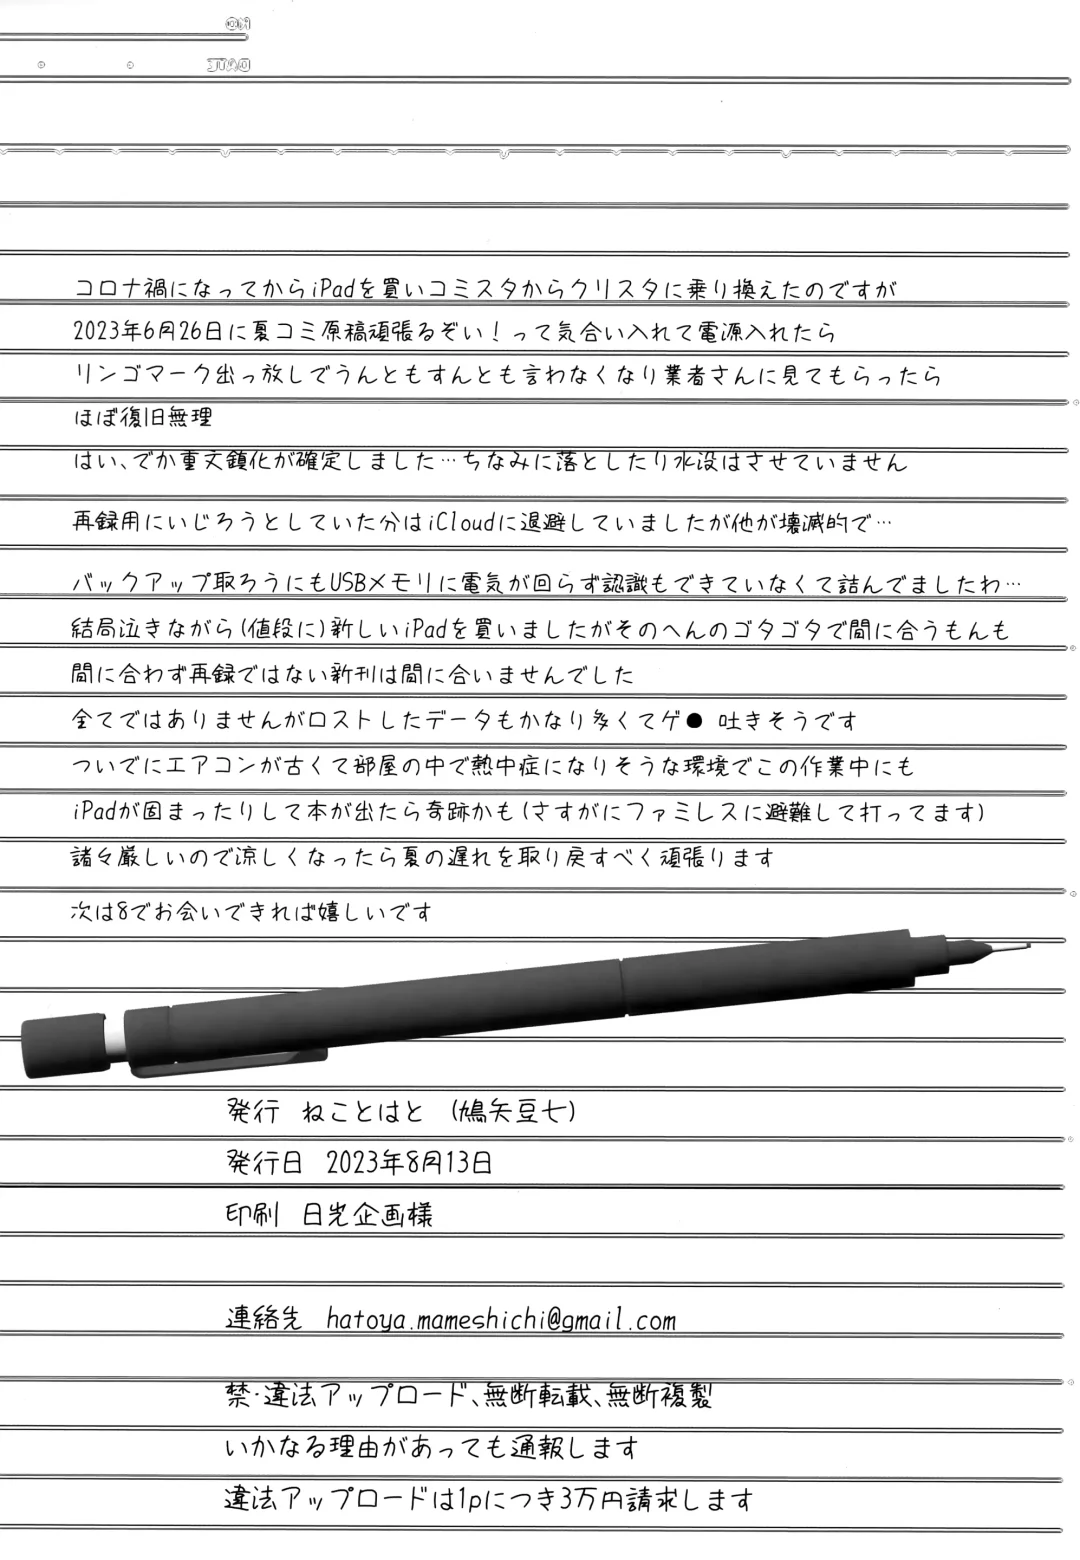 コロナ禍になってからiPadを買いコミスタからクリスタに乗り換えたのですが
2023年6月26日に夏コミ原稿頑張るぞい！って気合い入れて電源入れたら
リンゴマーク出っ放しでうんともすんとも言わなくなり業者さんに見てもらったら
ほぼ復旧無理
はい、でか重文鎮化が確定しました…ちなみに落としたり水没はさせていません
再録用にいじろうとしていた分はiCloudに退避していましたが他が壊滅的で…
バックアップ取ろうにもUSBメモリに電気が回らず認識もできていなくて詰んでましたわ…
結局泣きながら(値段に)新しいiPadを買いましたがそのへんのゴタゴタで間に合うもんも
間に合わず再録ではない新刊は間に合いませんでした
全てではありませんがロストしたデータもかなり多くてゲ● 吐きそうです
ついでにエアコンが古くて部屋の中で熱中症になりそうな環境でこの作業中にも
iPadが固まったりして本が出たら奇跡かも(さすがにファミレスに避難して打ってます)
諸々厳しいので涼しくなったら夏の遅れを取り戻すべく頑張ります
次は8でお会いできれば嬉しいです
発行 ねことはと (鳩矢豆七)
発行日 2023年8月13日
印刷 日光企画様
連絡先 hatoya.mameshichi@gmail.com
禁・違法アップロード、無断転載、無断複製
いかなる理由があっても通報します
違法アップロードは1pにつき3万円請求します